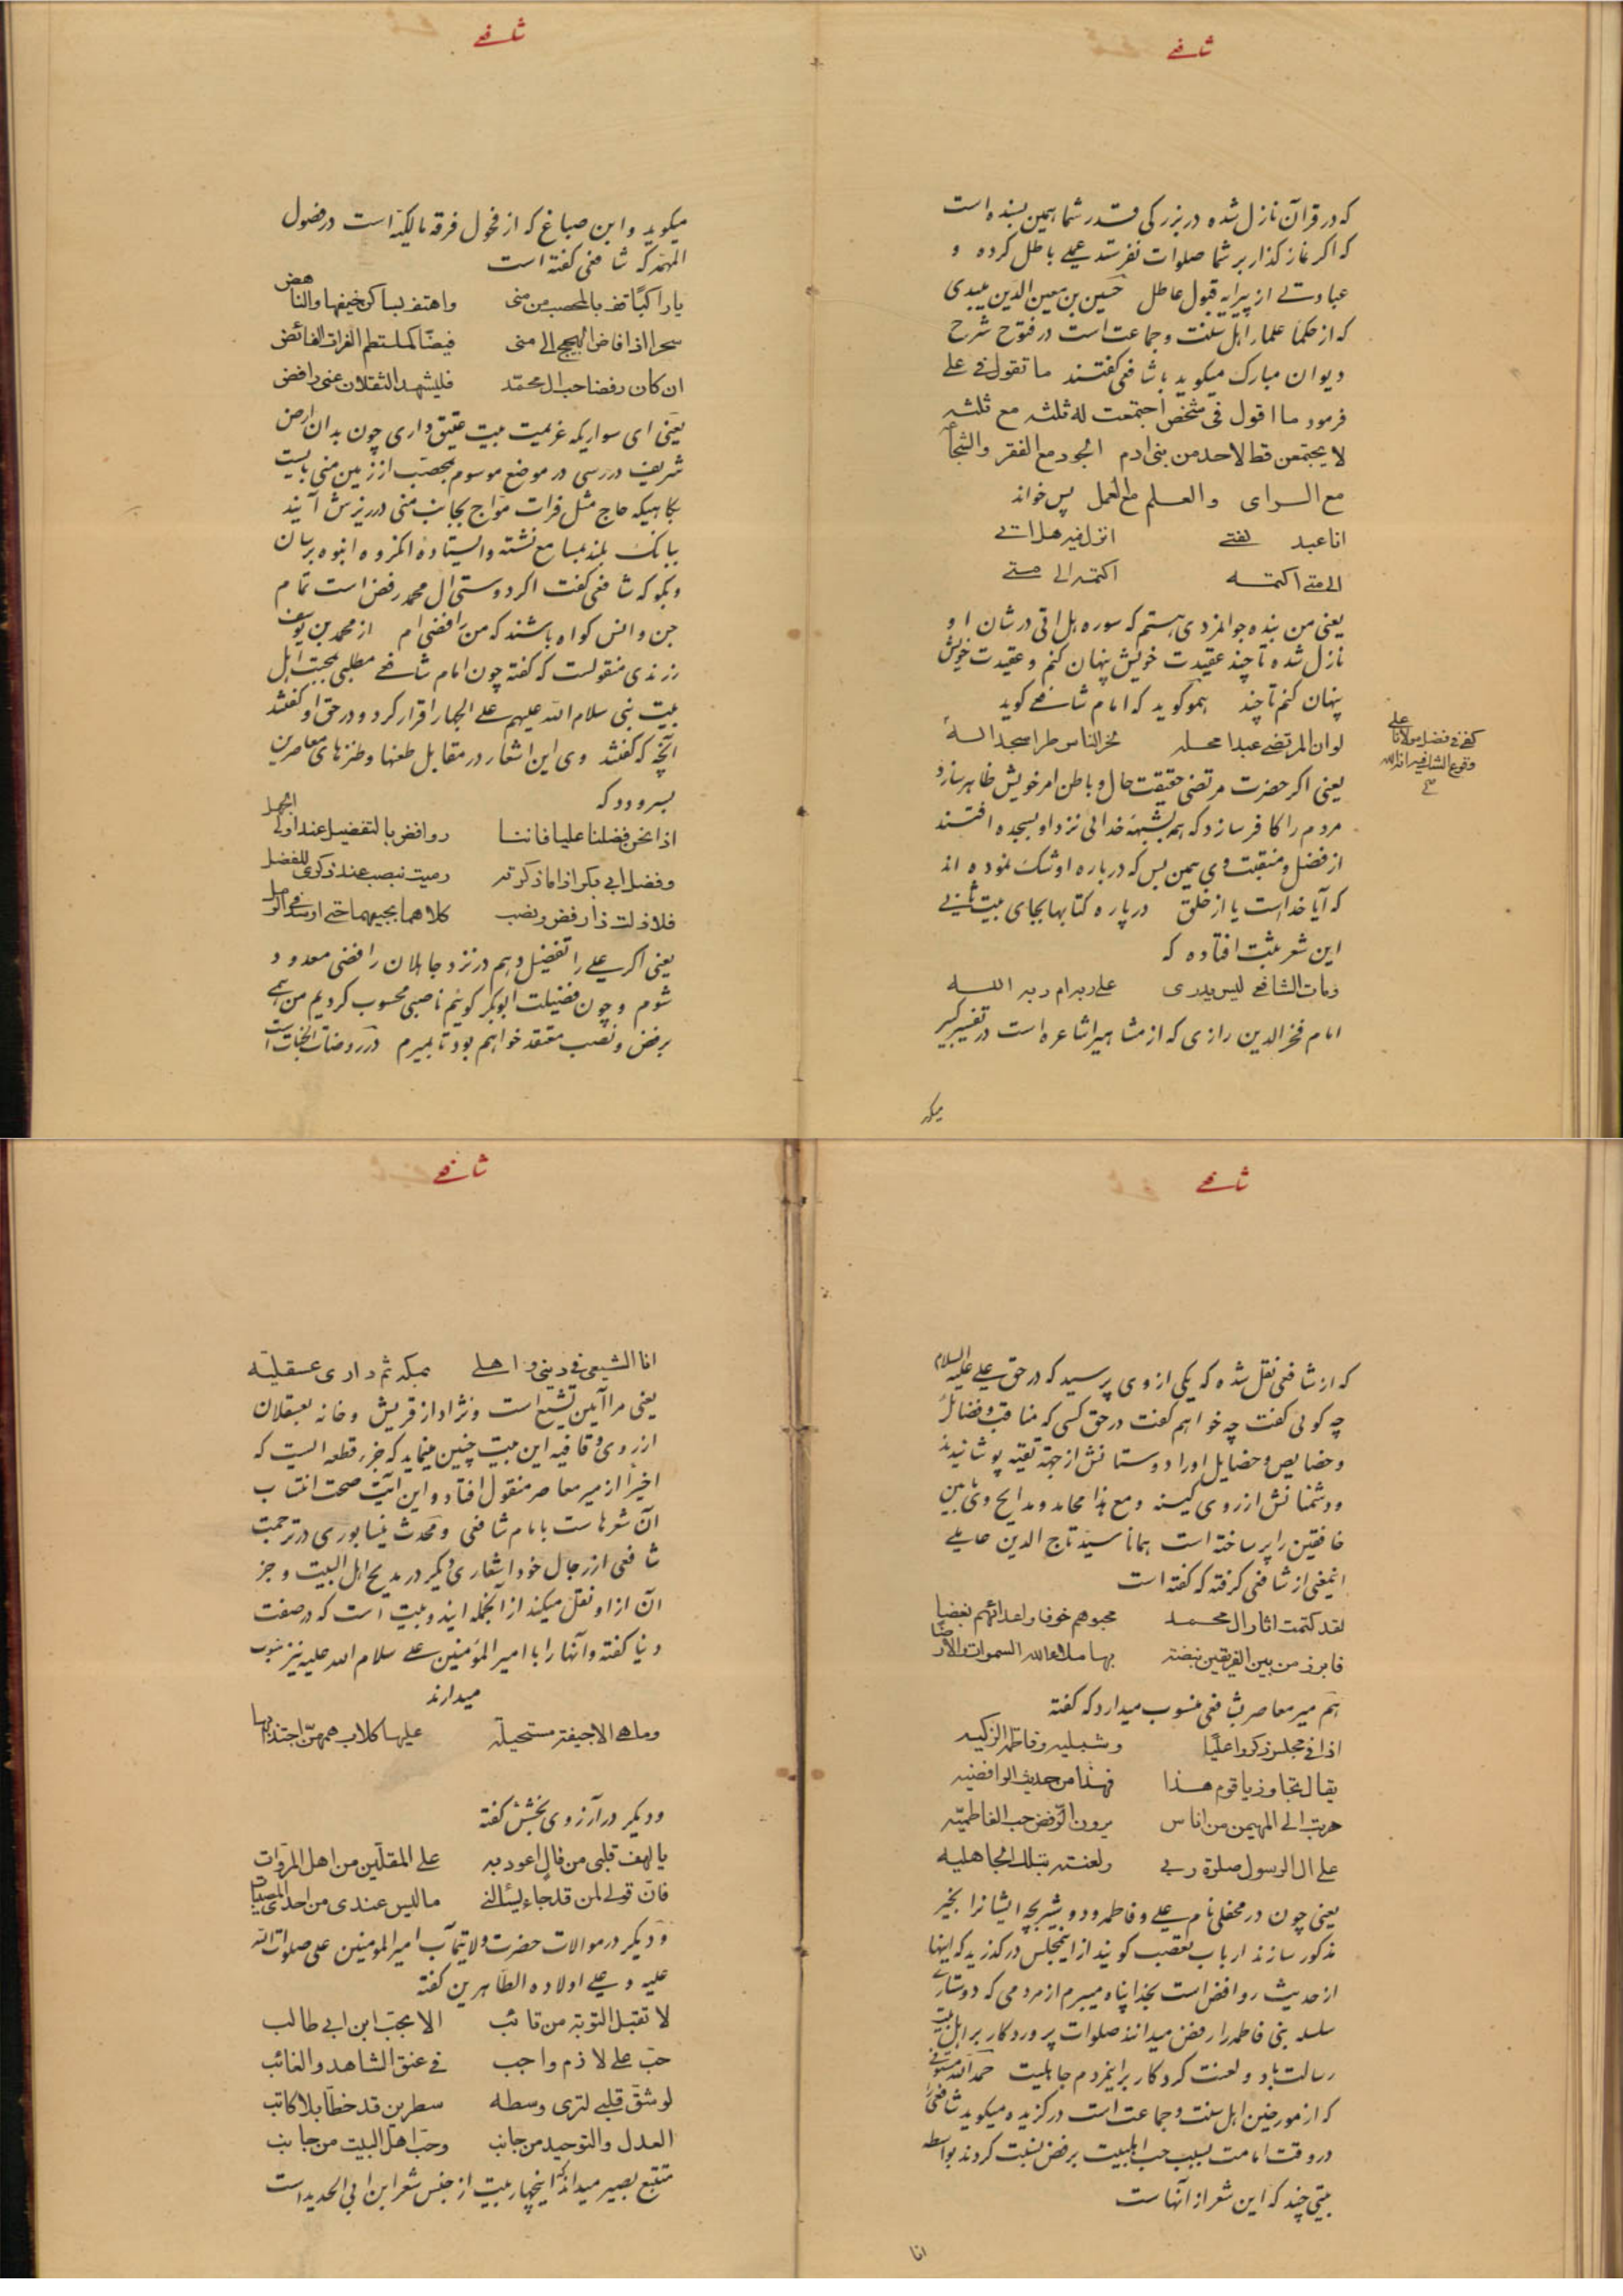 شافعے
که در قرآن نازل شده در بزرکی قدر شما همین بسنده است
که اکر نماز کذار بر شما صلوات نفرستد عملے باطل کرده و
عبادتے از پیرایه قبول عاطل حسین بن معین الدین میبدی
که از حکما علمار اهل سنت و جماعت است در فتوح شرح
دیوان مبارک میکوید با شافعی کفتند ما تقول فے علے
فرمود ما اقول فی شخص اجتمعت له ثلثه مع ثلثه
لا یجتمعن قط لاحد من بنی ادم الجود مع الفقر والشجا
مع الرای والعلم مع العمل پس خواند
انا عبد لفتے انزل فیه هل اتے
الی متے اکتمه اکتمه الی متے
یعنی من بنده جوانمردی هستم که سوره هل اتی در شان او
نازل شده تا چند عقیدت خویش پنهان کنم و عقیدت خویش
پنهان کنم تا چند همو کوید که امام شافعے کوید
لو ان المرتضے عبدا محله لخر الناس طرا سجدا له
یعنی اکر حضرت مرتضی حقیقت حال و باطن امر خویش ظاهر سازد
مردم را کافر سازد که هم بشبهه خدائی نزد او بسجده افتند
از فضل و منقبت وی همین بس که درباره او شک نموده اند
که آیا خداست یا از خلق در پاره کتابها بجای بیت ثانی
این شعر مثبت افتاده که
ومات الشافعے لیس یدری علے ربه ام ربه الله
امام فخر الدین رازی که از مشاهیر اشاعره است در تفسیر کبیر
کفی فی فضل مولانا علے
وقوع الشک فیه انه الله
میکو
شافعے
میکوید و ابن صباغ که از فحول فرقه مالکیة است در فصول
المهمه که شافعی کفته است
یا راکبًا قف بالمحصب من منی واهتف بساکن خیفها والناهض
سحرا اذا فاض الحجیج الی منی فیضًا کملتطم الفرات الفائض
ان کان رفضا حب ال محمّد فلیشهد الثقلان عنی رافض
یعنی ای سواریکه عزیمت بیت عتیق داری چون بدان ارض
شریف دررسی در موضع موسوم بمحصّب از زمین منی بایست
بکاهیکه حاج مثل فرات موّاج بجانب منی در ریزش آیند
ببانک بلند بمسامع نشسته و ایستاده آنکروه انبوه برسان
و بکو که شافعی کفت اکر دوستی ال محمد رفض است تمام
جن و انس کواه باشند که من رافضی ام از محمد بن یوسف
زرندی منقولست که کفته چون امام شافعے مطلبی بمحبت اهل
بیت نبی سلام الله علیهم علے الجهار اقرار کرد و در حق او کفتند
آنچه که کفتند وی این اشعار در مقابل طعنها و طنزهای معاصرین
بسرود که
اذا نحن فضلنا علیا فاننا روافض بالتفضیل عند اولی الجهل
وفضل ابی بکر اذا ما ذکرته رمیت بنصب عند ذکری للفضل
فلا زلت ذا رفض ونصب کلاهما بحبیهما حتے اوسد فے الرمل
یعنی اکر علے را تفضیل دهم در نزد جاهلان رافضی معدود
شوم و چون فضیلت ابوبکر کویم ناصبی محسوب کردیم من همے
برفض و نصب معتقد خواهم بود تا بمیرم در روضات الجنات است
شافعے
که از شافعی نقل شده که یکی از وی پرسید که در حق علے علیه السلام
چه کوئی کفت چه خواهم کفت در حق کسی که مناقب و فضائل
و خصایص و خصایل او را دوستانش از جهة تقیه پوشانیدند
و دشمنانش از روی کینه و مع هذا محامد و مدایح وی مابین
خافقین را پر ساخته است همانا سیّد تاج الدین عاملے
اینمعنی از شافعی کرفته که کفته است
لقد کتمت اثار ال محمد محبوهم خوفا واعدائهم بغضا
فابرز من بین الفریقین نبضة بها ملاء الله السموات والارضًا
هم میر معاصر بشافعی منسوب میدارد که کفته
اذا فے مجلس ذکروا علیًّا وشبلیه وفاطمة الزکیه
یقال تجاوز یا قوم هذا فهذا من حدیث الرافضیه
هربت الی المهیمن من اناس یرون الرّفض حب الفاطمیّه
علی ال الرسول صلوة ربے ولعنته بتلک الجاهلیه
یعنی چون در محفلی نام علے و فاطمه و دو شیر بچه ایشانرا بخیر
مذکور سازند ارباب تعصب کویند از اینمجلس درکذرید که اینها
از حدیث روافض است بخدا پناه میبرم از مردمی که دوستارے
سلسله بنی فاطمه را رفض میدانند صلوات پروردکار بر اهل بیت
رسالت باد و لعنت کردکار بر اینمردم جاهلیت حمد الله مستوفی
که از مورخین اهل سنت و جماعت است در کزیده میکوید شافعی را
در وقت امامت بسبب حب اهلبیت برفض نسبت کردند بواسطه
بیتی چند که این شعر از آنهاست
انا
شافعے
انا الشیعی فی دینی و اهلے بمکة ثم داری عسقلیّه
یعنی مرا آیین تشیع است و نژاد از قریش و خانه بعسقلان
از روی و قافیه این بیت چنین مینماید که جزر قطعه الیست که
اخیراً از میر معاصر منقول افتاد و این آیت صحت انتساب
آن شعرهاست بامام شافعی و محدث نیسابوری در ترجمت
شافعی از رجال خود اشعاری دیکر در مدیح اهل البیت و جز
آن از او نقل میکند از آنجمله ایندو بیت است که در صفت
دنیا کفته و آنها را با امیر المؤمنین علے سلام الله علیه نیز منسوب
میدارند
وما هے الا جیفة مستحیلة علیها کلاب همهنّ اجتذابها
و دیکر در آرزوی بخشش کفته
یا لهف قلبی من مٰال اعود به علے المقلّین من اهل المروّات
فانّ قولے لمن قد جاء یسئالنے مالیس عندی من احدی المصیبات
و دیکر در موالات حضرت ولایتمآب امیر المومنین علی صلوات الله
علیه و علے اولاده الطّاهرین کفته
لا تقبل التوبة من تائب الا بحبّ ابن ابی طالب
حبّ علے لازم واجب فے عنق الشاهد والغائب
لو شقّ قلبے لتری وسطه سطرین قد خطّا بلا کاتب
العدل والتوحید من جانب وحبّ اهل البیت من جانب
متتبع بصیر میداند که اینچهار بیت از جنس شعر ابن ابی الحدید است